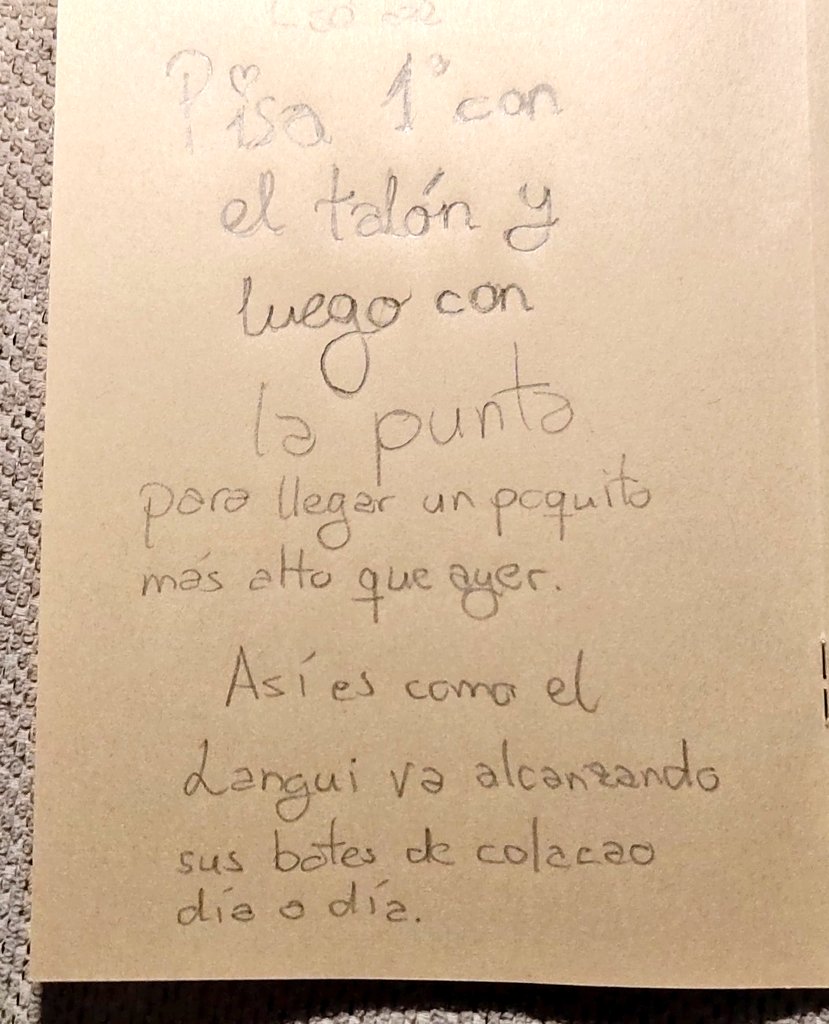 Pisa 1º con
el talón y
luego con
la punta
para llegar un poquito
más alto que ayer.
Así es como el
Langui va alcanzando
sus botes de colacao
día a día.